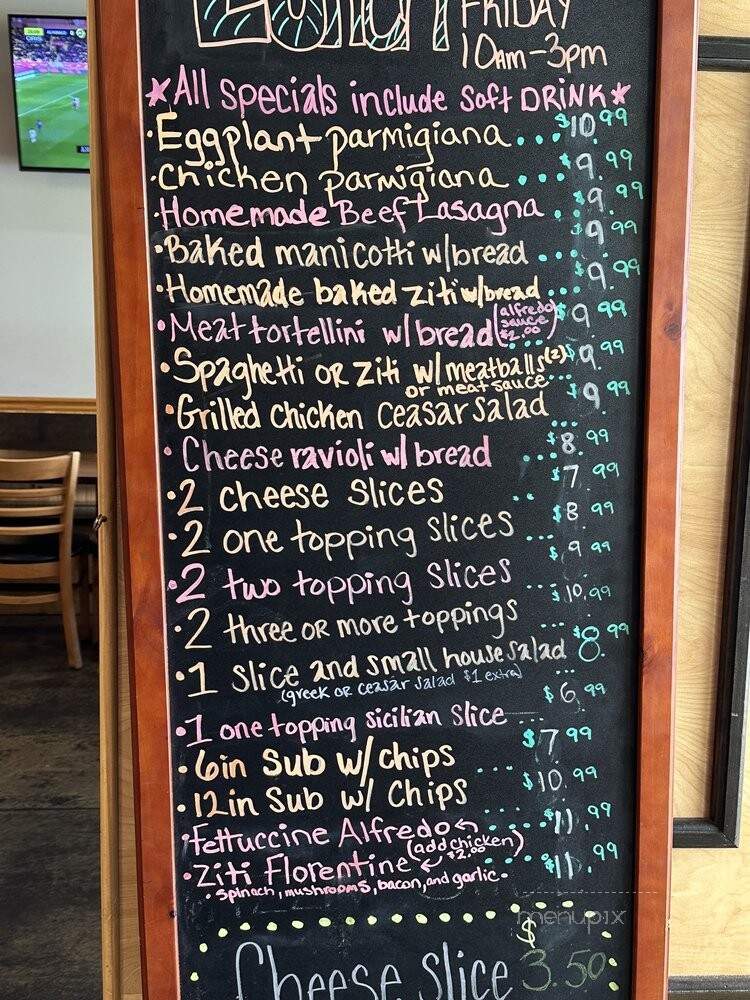 Lunch FRIDAY
10am-3pm
*All specials include soft DRINK*
·Eggplant parmigiana...$10.99
·Chicken parmigiana...$9.99
·Homemade Beef Lasagna...$9.99
·Baked manicotti w/bread...$9.99
·Homemade baked ziti w/bread...$9.99
·Meat tortellini w/bread (alfredo sauce $2.00)...$9.99
·Spaghetti or ziti w/meatballs(2)...$9.99
or meat sauce
·Grilled Chicken Ceasar Salad...$9.99
·Cheese ravioli w/ bread...$8.99
·2 cheese slices...$7.99
·2 one topping slices...$8.99
·2 two topping slices...$9.99
·2 three or more toppings...$10.99
·1 slice and small house salad...$8.99
(greek or ceasar salad $1 extra)
·1 one topping sicilian slice...$6.99
·6in Sub w/chips...$7.99
·12in Sub w/ Chips...$10.99
·Fettuccine Alfredo...$11.99
(add chicken) $2.00
·Ziti Florentine...$11.99
·spinach, mushrooms, bacon, and garlic·
menupix
Cheese slice $3.50